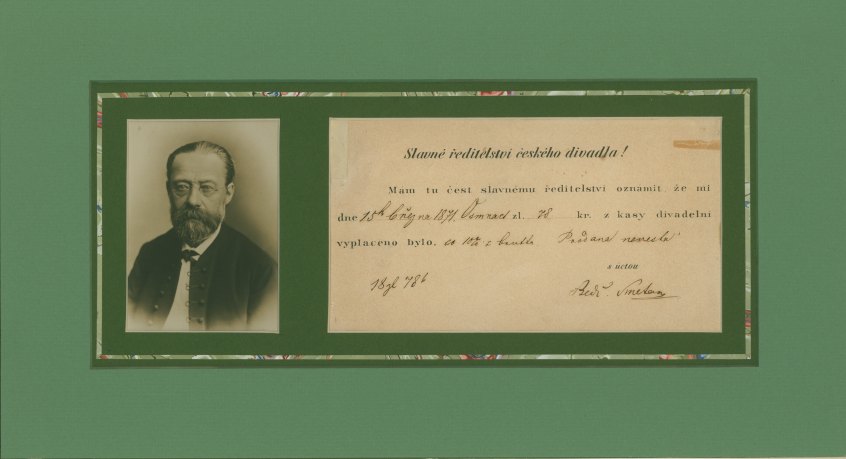 Slavné ředitelství českého divadla!
Mám tu čest slavnému ředitelství oznámit, že mi
dne 15h 1871. Osmnact zl. 78 kr. z kasy divadelní
vyplaceno bylo, co 10% z brutto Prodaná nevěsta
s úctou
18 zl 78 k Bedř. Smetana